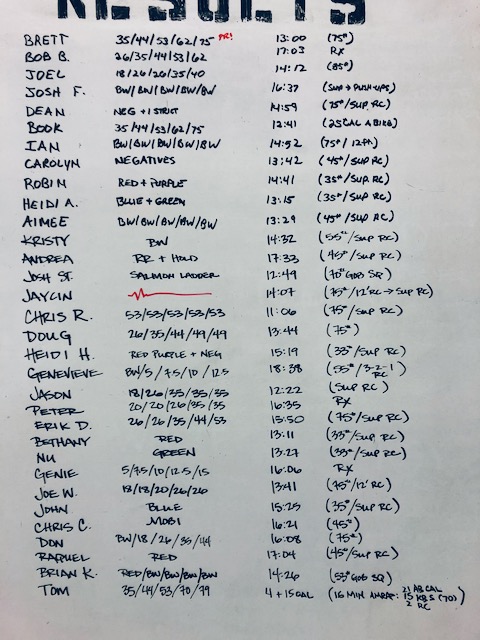 RESULTS
BRETT 35/44/53/62/75 PR! 13:00 (75#)
BOB B. 26/35/44/53/62 17:03 RX
JOEL 18/26/26/35/40 14:12 (85#)
JOSH F. BW/BW/BW/BW/BW 16:37 (SUP → PUSH-UPS)
DEAN NEG + 1 STRICT 14:59 (75#/SUP. RC)
BOOK 35/44/53/62/75 12:41 (25 CAL A BIKE)
IAN BW/BW/BW/BW/BW 14:52 (75#/12 ft.)
CAROLYN NEGATIVES 13:42 (45#/SUP RC)
ROBIN RED + PURPLE 14:41 (35#/SUP. RC)
HEIDI A. BLUE + GREEN 13:15 (35#/SUP RC)
AIMEE BW/BW/BW/BW/BW 13:29 (45#/SUP RC)
KRISTY BW 14:32 (55#/SUP RC)
ANDREA RR + HOLD 17:33 (45#/SUP RC)
JOSH ST. SALMON LADDER 12:49 (70# GOB SQ)
JAYCIN 14:07 (75#/12' RC → SUP RC)
CHRIS R. 53/53/53/53/53 11:06 (75#/SUP RC)
DOUG 26/35/44/49/49 13:44 (75#)
HEIDI H. RED PURPLE + NEG 15:19 (33#/SUP RC)
GENEVIEVE BW/5/7.5/10/12.5 18:38 (55#/3-2-1 RC)
JASON 18/26/35/35/35 12:22 (SUP RC)
PETER 20/20/26/35/35 16:35 RX
ERIK D. 26/26/35/44/53 15:50 (75#/SUP RC)
BETHANY RED 13:11 (33#/SUP RC)
NU GREEN 13:27 (33#/SUP RC)
GENIE 5/7.5/10/12.5/15 16:06 RX
JOE W. 18/18/20/26/26 13:41 (75#/12' RC)
JOHN BLUE 15:25 (35#/SUP RC)
CHRIS C. MOBI 16:21 (95#)
DON BW/18/26/35/44 16:08 (75#)
RAQUEL RED 17:04 (45#/SUP RC)
BRIAN K. RED/BW/BW/BW/BW 14:26 (53# GOB SQ)
TOM 35/44/53/70/79 4 + 15 CAL (16 MIN AMRAP: 21 AB CAL
15 KBS (70)
2 RC)